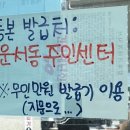 등본 발급처:
운서동 주민센터
※ 무인민원 발급기 이용
(지문으로...)